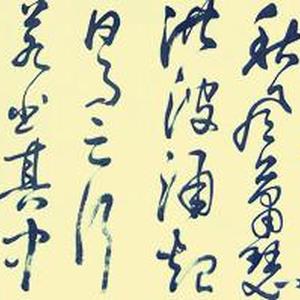 秋风萧瑟
洪波涌起
日月之行
若出其中